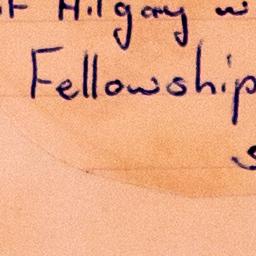 of Hilgay w
Fellowship
s